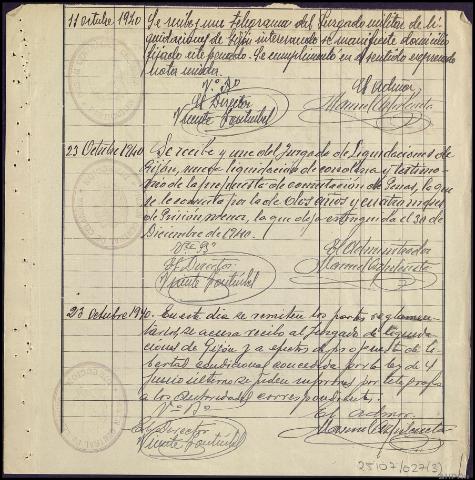 11 octubre 1940 Se recibe un telegrama del Juzgado militar de li-
quidaciones de Gijón interesando se manifieste domicilio
fijado este penado. Se cumplimenta en el sentido expresado
nota unida.
Vº Bº El Admor
El Director
Vicente
23 Octubre 1940. Se recibe y une del Juzgado de Liquidaciones de
Gijón, nueva liquidación de condena y testimo-
nio de la propuesta de conmutación de Penas, la que
se le conmuta por la de Dos años y cuatro meses
de Prisión menor, la que dejó extinguida el 30 de
Diciembre de 1940.
Vº Bº El Administrador
El Director Manuel
Vicente
23 octubre 1940. En este día se remiten los partes reglamen-
tarios, se acusa recibo al Juzgado de liquida-
ciones de Gijón y a efectos de propuesta de li-
bertad condicional concedida por la Ley de 4
Junio último se piden informes por telégrafo
a las autoridades correspondientes.
Vº Bº El Admor.
El Director Manuel
Vicente
25107/027(3)